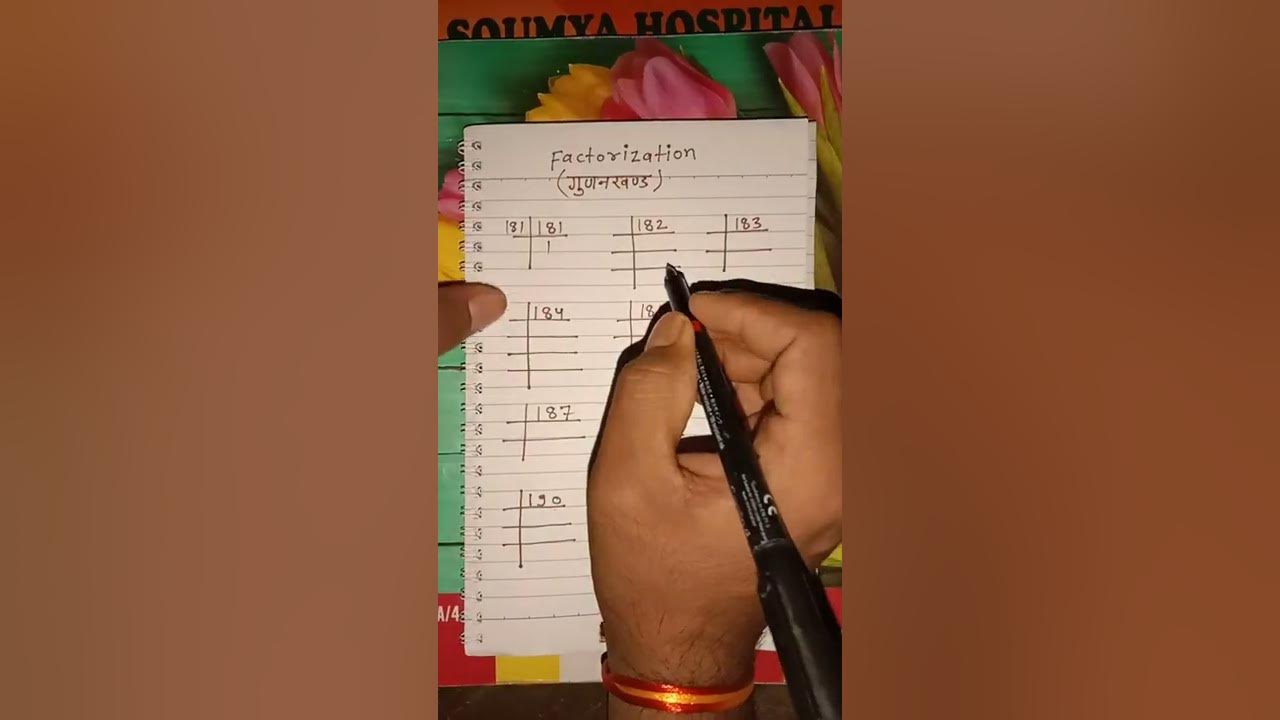 SOUMYA HOSPITAL
Factorization
(गुणनखण्ड)
181 181 182 183
1
184
187
190
A/4